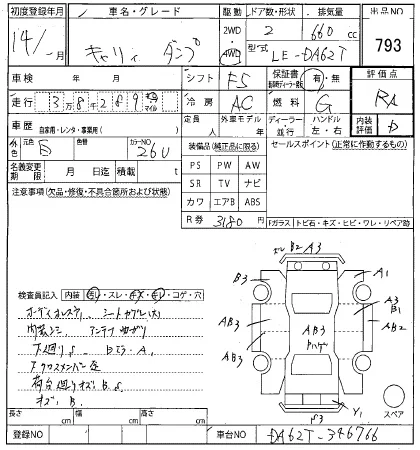 初度登録年月 車名・グレード 駆動 ドア数・形状 排気量 出品NO
14/ ・ 月 キャリィ ダンプ 2WD ・ 4WD 2 660 cc 793
型式 LE-DA62T
車検 年 月 シフト F5 保証書 有・無 評価点
走行 3万8千289 キロ マイル 冷房 AC 燃料 G RA
車歴 自家用・レンタ・事業用( ) 定員 人 外車モデル 年 ディーラー 並行 ハンドル 左・右 内装評価 D
外色 元色 白 色替 カラーNO 26U 装備品(純正品に限る) セールスポイント(正常に作動するもの)
名義変更期限 月 日迄 積載 t PS PW AW
注意事項(欠品・修復・不具合箇所および状態) SR TV ナビ
カワ エアB ABS
R券 3180 円 Fガラス トビ石・キズ・ヒビ・ワレ・リペア跡
B2 A3
B3 A1
検査員記入 内装 ・スレ・ ・コゲ・穴
AB3 A3 B1
シートカブレ(大) AB3 AB2
アンテナ
下廻りS AB3 AB3
クロスメンバー
荷台廻りキズ B.S
キズ B. Y1
スペア
長さ cm 幅 cm 高さ cm
登録NO 車台NO DA62T-346766